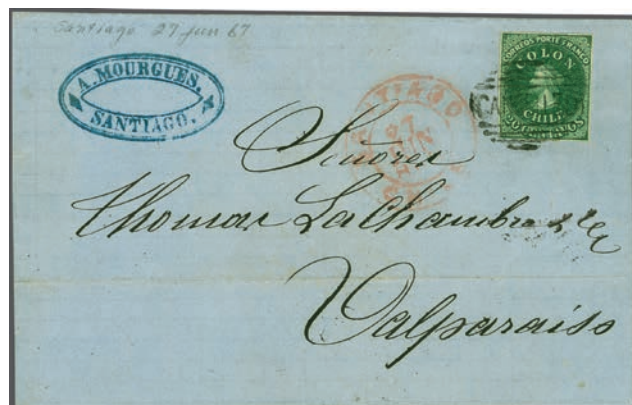 Santiago 27 jun 67
A. MOURGUES.
SANTIAGO.
SANTIAGO
27
JUN
CORREOS PORTE FRANCO
COLON
CHILE
20 CENTAVOS
Señores
Thomas LaChambre & Ca
Valparaiso